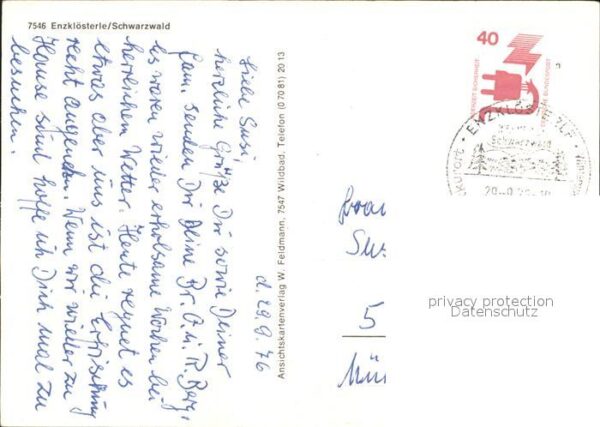 7546 Enzklösterle/Schwarzwald
d. 29.9.76
Liebe Susi,
herzliche Grüße Dir sowie Deiner
Fam. senden Dir Deine Br. O. u. R. Berg,
es waren wieder erholsame Wochen bei
herrlichem Wetter. Heute regnet es
etwas aber uns ist die Erfrischung
recht angenehm. Wenn wir wieder zu
Hause sind hoffe ich Dich mal zu
besuchen.
Ansichtskartenverlag W. Feldmann, 7547 Wildbad, Telefon (0 70 81) 20 13
40
DEUTSCHE BUNDESPOST
ENZKLÖSTERLE
Schwarzwald
Frau
Sus
5
Mün
privacy protection
Datenschutz